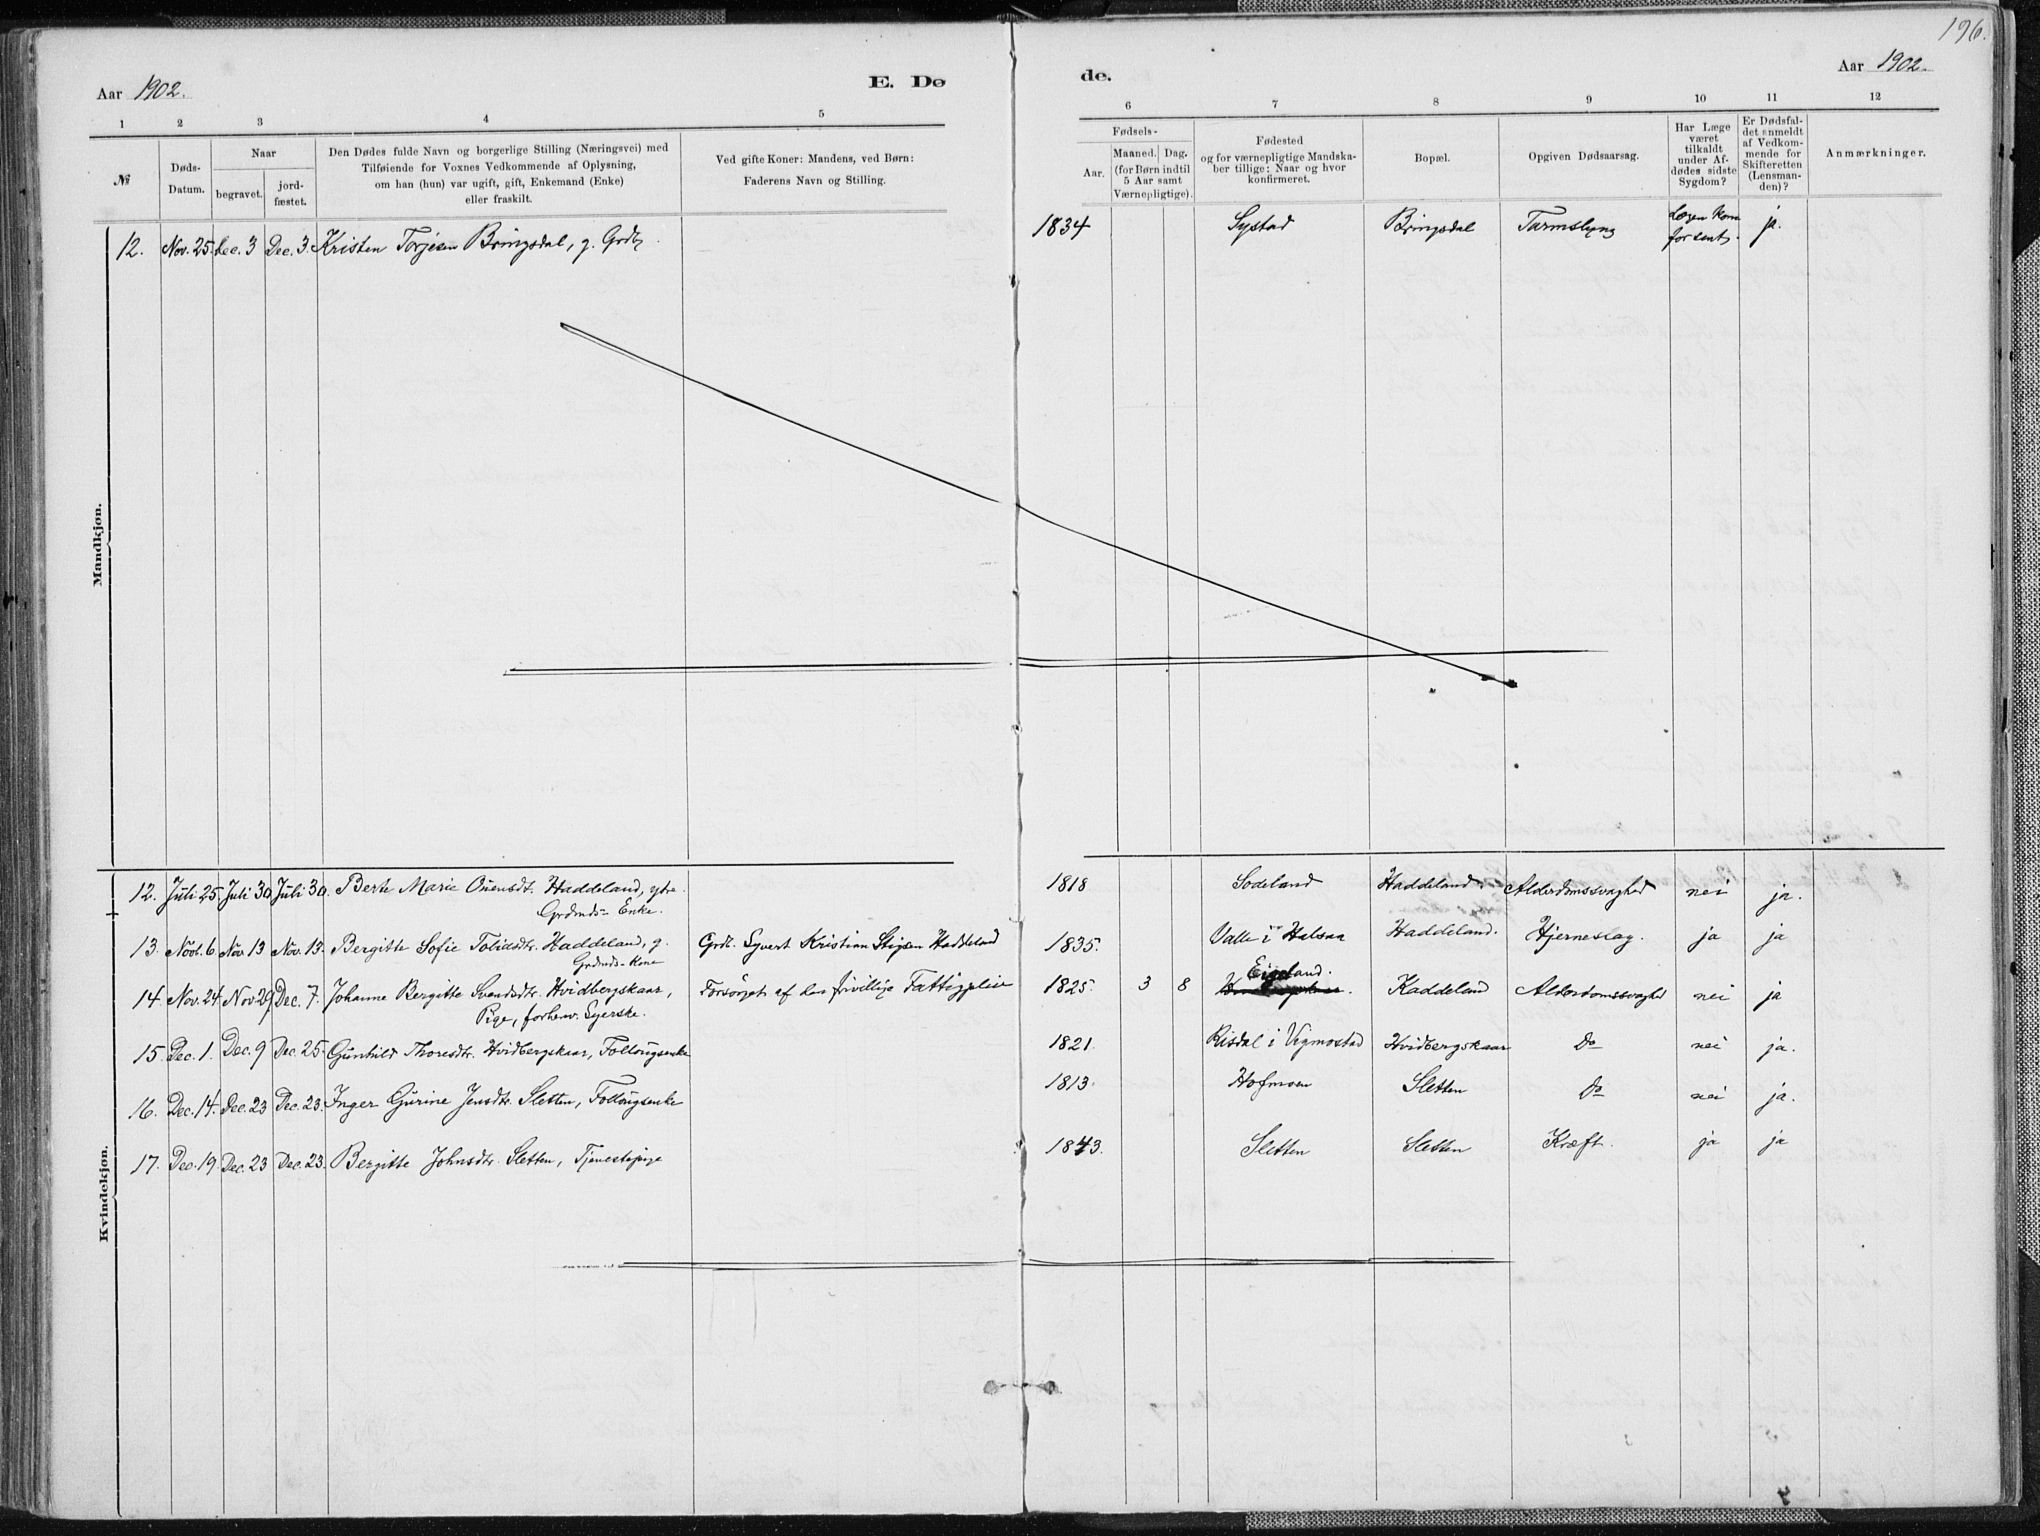 196.
Aar 1902.
E. Dø
de.
Aar 1902.
1 2 3 4 5 6 7 8 9 10 11 12
№
Døds-
Datum.
Naar
begravet.
jord-
fæstet.
Den Dødes fulde Navn og borgerlige Stilling (Næringsvei) med
Tilføiende for Voxnes Vedkommende af Oplysning,
om han (hun) var ugift, gift, Enkemand (Enke)
eller fraskilt.
Ved gifte Koner: Mandens, ved Børn:
Faderens Navn og Stilling.
Fødsels-
Aar.
Maaned. Dag.
(for Børn indtil
5 Aar samt
Værnepligtige).
Fødested
og for værnepligtige Mandska-
ber tillige: Naar og hvor
konfirmeret.
Bopæl.
Opgiven Dødsaarsag.
Har Læge
været
tilkaldt
under Af-
dødes sidste
Sygdom?
Er Dødsfal-
det anmeldt
af Vedkom-
mende for
Skifteretten
(Lensman-
den)?
Anmærkninger.
Mandkjøn.
12. Nov. 25. Dec. 3 Dec. 3. Kristen Torjesen Bringsdal, g. Grdb. 1834 Systad Bringsdal Tarmslyng Lægen kom
for sent. ja.
Kvindekjøn.
12. Juli 25. Juli 30 Juli 30. Berte Marie Ouensdt. Haddeland, ydre 1818 Sodeland Haddeland. Alderdomssvaghed nei ja.
Grdmds- Enke.
13. Nov. 6. Nov. 13 Nov. 13. Bergitte Sofie Tobiasdtr. Haddeland, g. Grdb. Syvert Kristian Stigsen Haddeland 1835. Valle i Halsaa Haddeland. Hjerneslag. ja ja
Grdmds-Kone
14. Nov. 24. Nov. 29 Dec. 7. Johanne Bergitte Svendsdtr. Hvidbergskaar, Forsørget af det frivillige Fattigpleie 1825. 3 8 Eigeland. Haddeland Alderdomssvaghed nei ja
Pige, forhenv. Syerske.
15. Dec. 1. Dec. 9 Dec. 25. Gunhild Thoresdtr. Hvidbergskaar, Follougsenke 1821. Risdal i Vigmostad Hvidbergskaar Do nei ja.
16. Dec. 14. Dec. 23 Dec. 23. Inger Gurine Jensdtr. Sletten, Follougsenke 1813. Hofmoen Sletten Do nei ja.
17. Dec. 19. Dec. 23 Dec. 23. Bergitte Johnsdtr. Sletten, Tjenestepige 1843. Sletten Sletten Kræft. ja ja